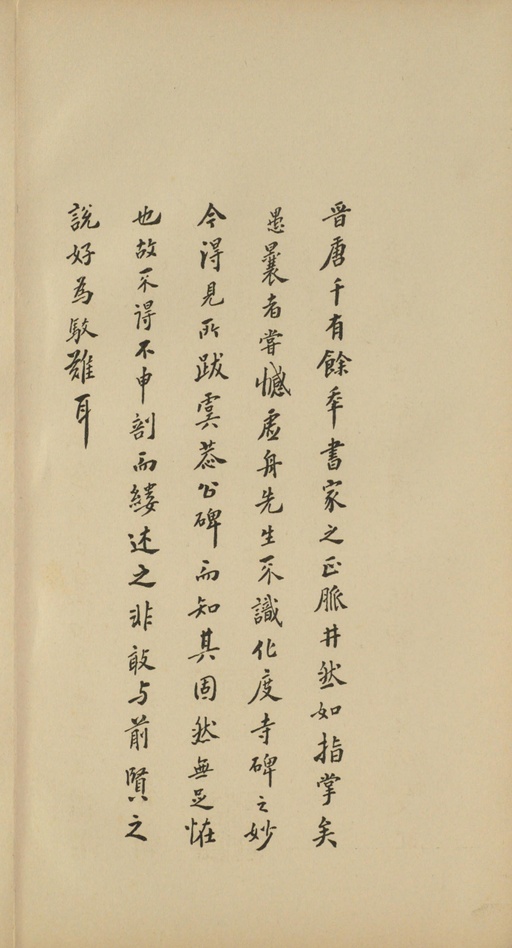 晉唐千有餘年書家之正脈井然如指掌矣
愚曩者嘗憾虛舟先生不識化度寺碑之妙
今得見所跋虞恭公碑而知其固然無足怪
也故不得不申剖而縷述之非敢与前賢之
說好為駮難耳